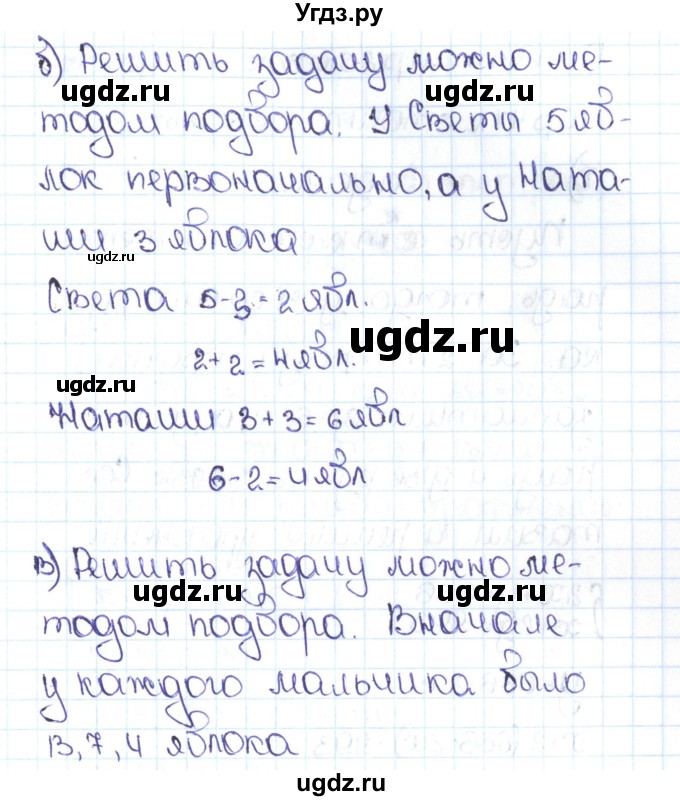 Угдз.ру
б) Решить задачу можно ме-
ugdz.ru ugdz.ru
тодом подбора. У Светы 5 яб-
лок первоначально, а у Ната-
ши 3 яблока
ugdz.ru
Света 5-3=2 ябл.
ugdz.ru
2+2=4 ябл.
ugdz.ru
Наташи 3+3=6 ябл
6-2=4 ябл
в) Решить задачу можно ме-
ugdz.ru ugdz.ru
тодом подбора. Вначале
у каждого мальчика было
ugdz.ru
13, 7, 4 яблока
ugdz.ru